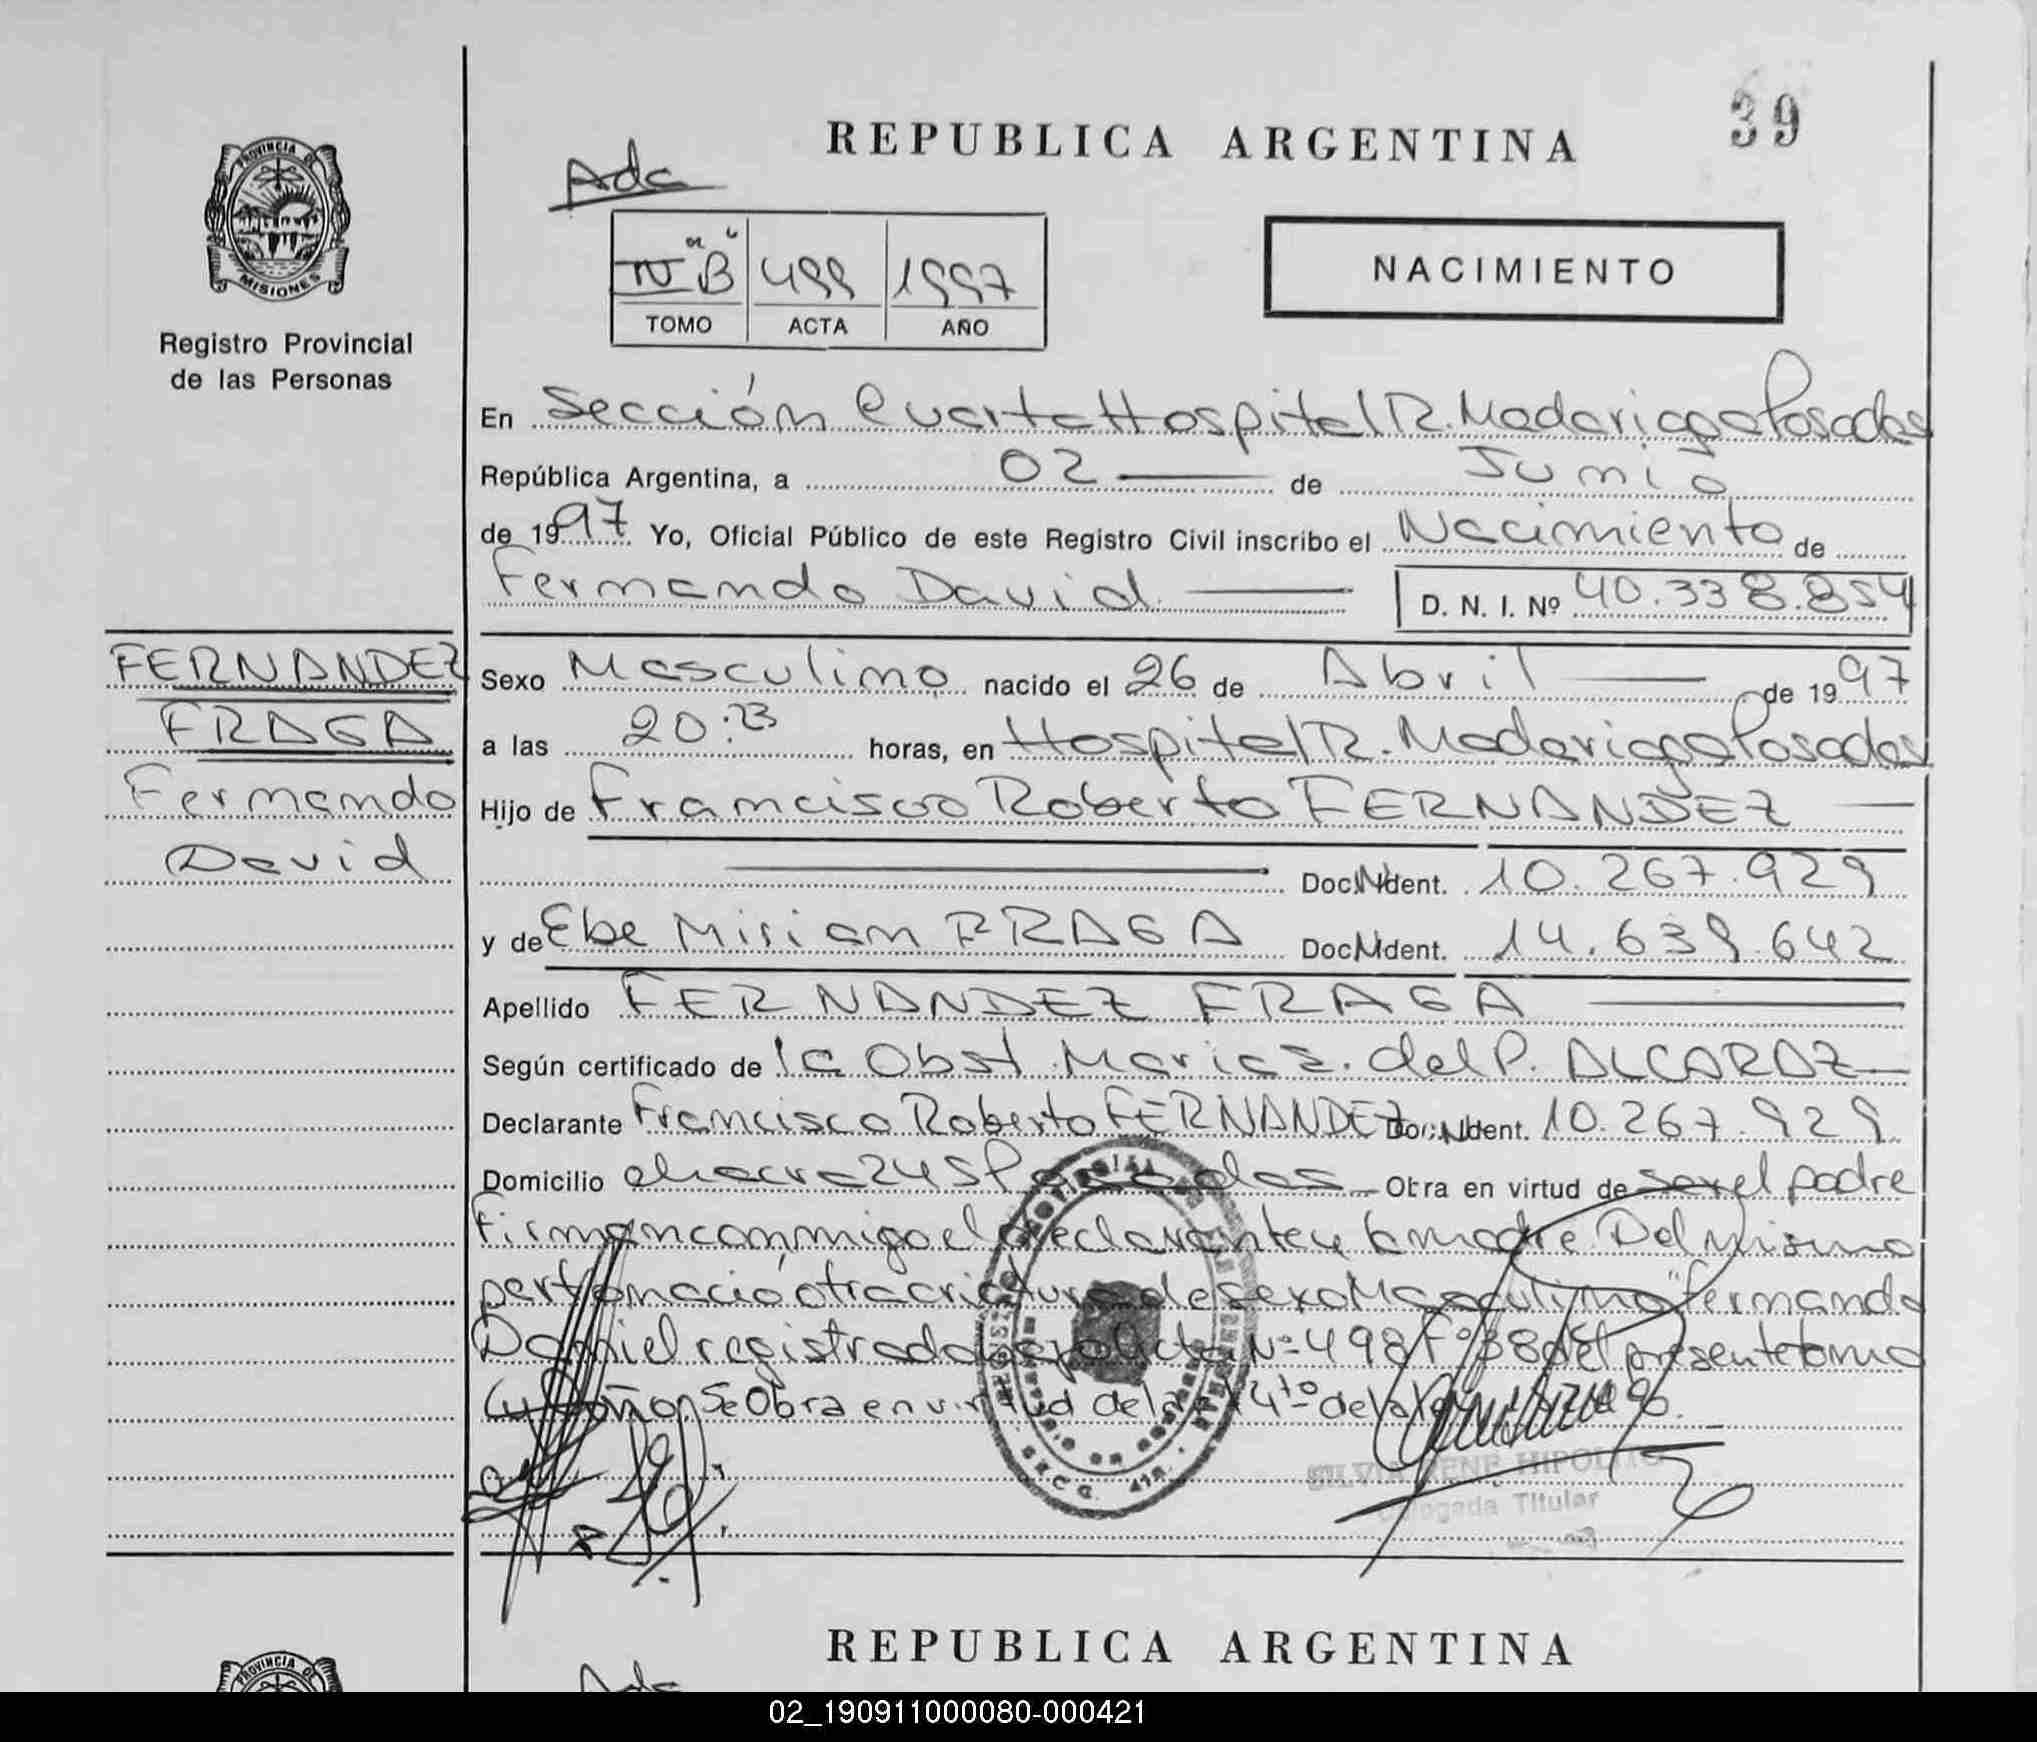 39
REPUBLICA ARGENTINA
Adc
PROVINCIA DE
MISIONES
Registro Provincial
de las Personas
"B" 499 1997
TOMO ACTA AÑO
NACIMIENTO
En Sección Cuarta Hospital R. Madariaga Posadas
República Argentina, a 02 de Junio
de 1997 Yo, Oficial Público de este Registro Civil inscribo el Nacimiento de
Fernando David D. N. I. Nº 40.338.854
FERNANDEZ
FRAGA
Fernando
David
Sexo Masculino nacido el 26 de Abril de 1997
a las 20:23 horas, en Hospital R. Madariaga Posadas
Hijo de Francisco Roberto FERNANDEZ
Doc. Ident. 10.267.929
y de Ebe Miriam FRAGA Doc. Ident. 14.639.642
Apellido FERNANDEZ FRAGA
Según certificado de la Obst. Maria del P. ALCARAZ
Declarante Francisco Roberto FERNANDEZ Doc. Ident. 10.267.929
Domicilio chacra 245 Posadas Obra en virtud de ser el padre
Firman conmigo el declarante y la madre. Del mismo
parto nació otra criatura de sexo Masculino "Fernando
Daniel registrado bajo acta Nº 498 Fº 38 del presente tomo
y año. Se Obra en virtud de la 4to de la
SILVIA RENE HIPOLITO
Delegada Titular
REPUBLICA ARGENTINA
PROVINCIA DE
Adc
02_190911000080-000421